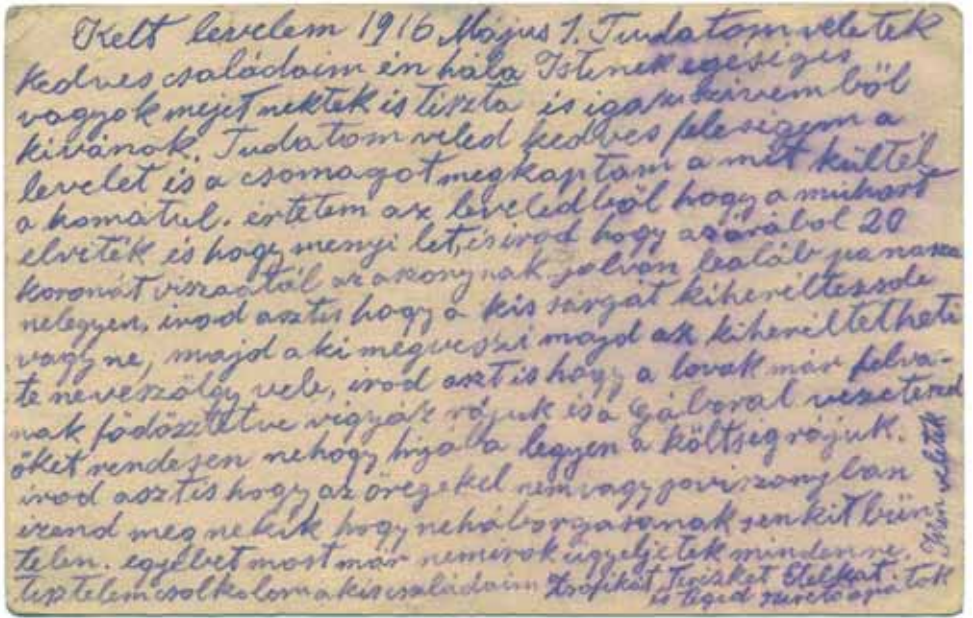 Kelt levelem 1916 Május 1. Tudatom veletek
kedves családaim én hála Istenek egésiges
vagyok mejet nektek is tiszta és igaz szivemből
kivánok. Tudatom veled kedves feleségem a
levelet és a csomagot megkaptam a mit kültél
a komátul. értetem az leveledből hogy a muhart
elviték és hogy menyi let, és irod hogy az árából 20
koronát viszaatál az aszonynak jolvan legaláb panasza
nelegyen, irod asztis hogy a kis sárgát kiheréltessde
vagy ne, majd a ki megveszi majd az kiheréltetheti
te neveszölgy vele, irod aszt is hogy a lovak már felva-
nak födöztetve vigyáz rájuk és a Gáboral vezetesed
őket rendesen nehogy hijába legyen a költség rájuk.
irod asztis hogy az öregekel nem vagy joviszonyban
izend meg nekik hogy neháborgasanak senkit bün
telen. egyebet most már nemirok ügyeljetek mindenre.
tisztelem csolkolom a kis családaim Zsófikát Terizket Etelkat.
és téged szerető apátok
Isten veletek